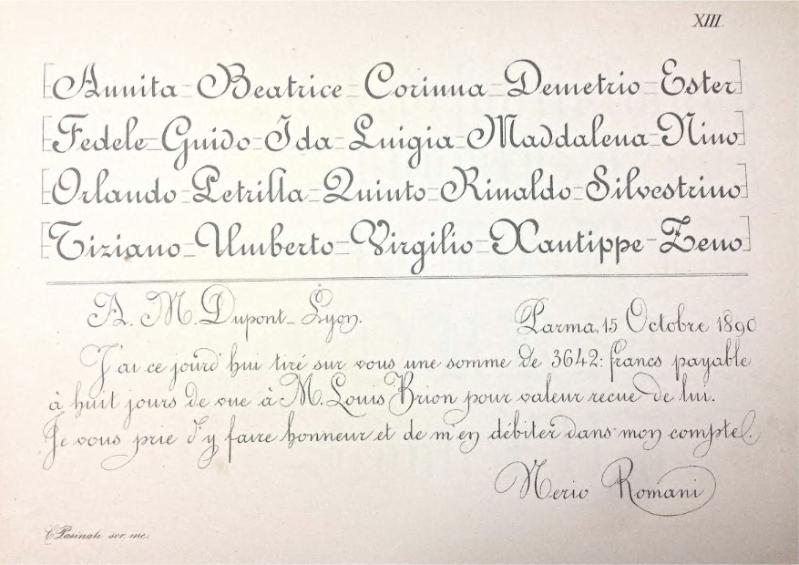 XIII.
Annita = Beatrice = Corinna = Demetrio = Ester
Fedele = Guido = Ida = Luigia = Maddalena = Nino
Orlando = Petrilla = Quinto = Rinaldo = Silvestrino
Tiziano = Umberto = Virgilio = Xantippe = Zeno
A. M. Dupont - Lyon.
Parma, 15 Octobre 1890
J'ai ce jourd'hui tiré sur vous une somme de 3642: francs payable
à huit jours de vue à M. Louis Brion pour valeur recue de lui.
Je vous prie d'y faire honneur et de m'en débiter dans mon compte.
Nerio Romani